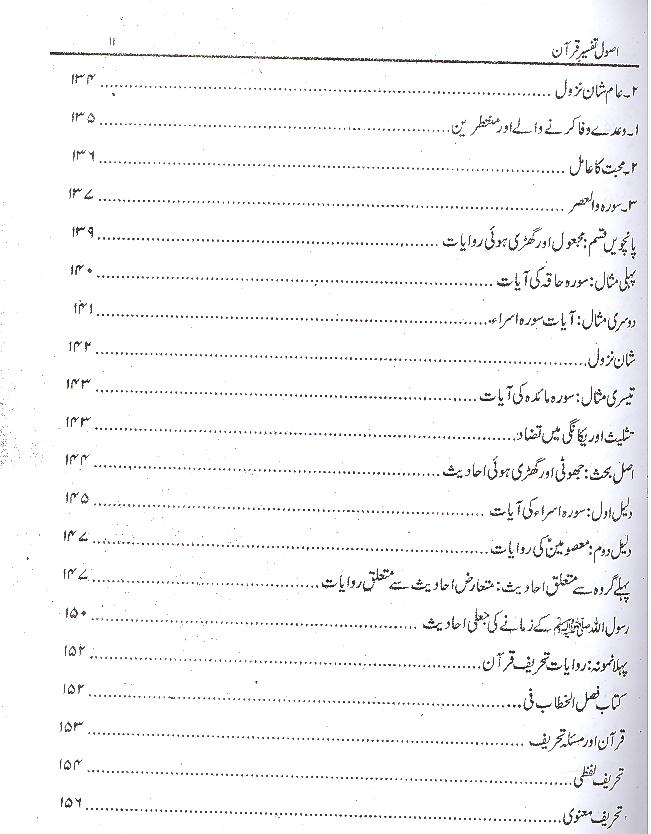 اصول تفسیر قرآن ۱۲
۲۔عام شان نزول ۱۳۴
۱۔وعدے وفا کرنے والے اور منتظرین ۱۳۵
۲۔محبت کا عامل ۱۳۶
۳۔سورہ والعصر ۱۳۷
پانچویں قسم: مجعول اور گھڑی ہوئی روایات ۱۳۹
پہلی مثال: سورہ حاقہ کی آیات ۱۴۰
دوسری مثال: آیات سورہ اسراء ۱۴۱
شان نزول ۱۴۲
تیسری مثال: سورہ مائدہ کی آیات ۱۴۳
تثلیث اور یکانگی میں تضاد ۱۴۳
اصل بحث: جھوٹی اور گھڑی ہوئی احادیث ۱۴۴
دلیل اول: سورہ اسراء کی آیات ۱۴۵
دلیل دوم: معصومینؑ کی روایات ۱۴۷
پہلے گروہ سے متعلق احادیث: متعارض احادیث سے متعلق روایات ۱۴۷
رسول اللہ ﷺ کے زمانے کی جعلی احادیث ۱۵۰
پہلا نمونہ: روایات تحریف قرآن ۱۵۲
کتاب فصل الخطاب فی ۱۵۲
قرآن اور مسئلہ تحریف ۱۵۳
تحریف لفظی ۱۵۴
تحریف معنوی ۱۵۶